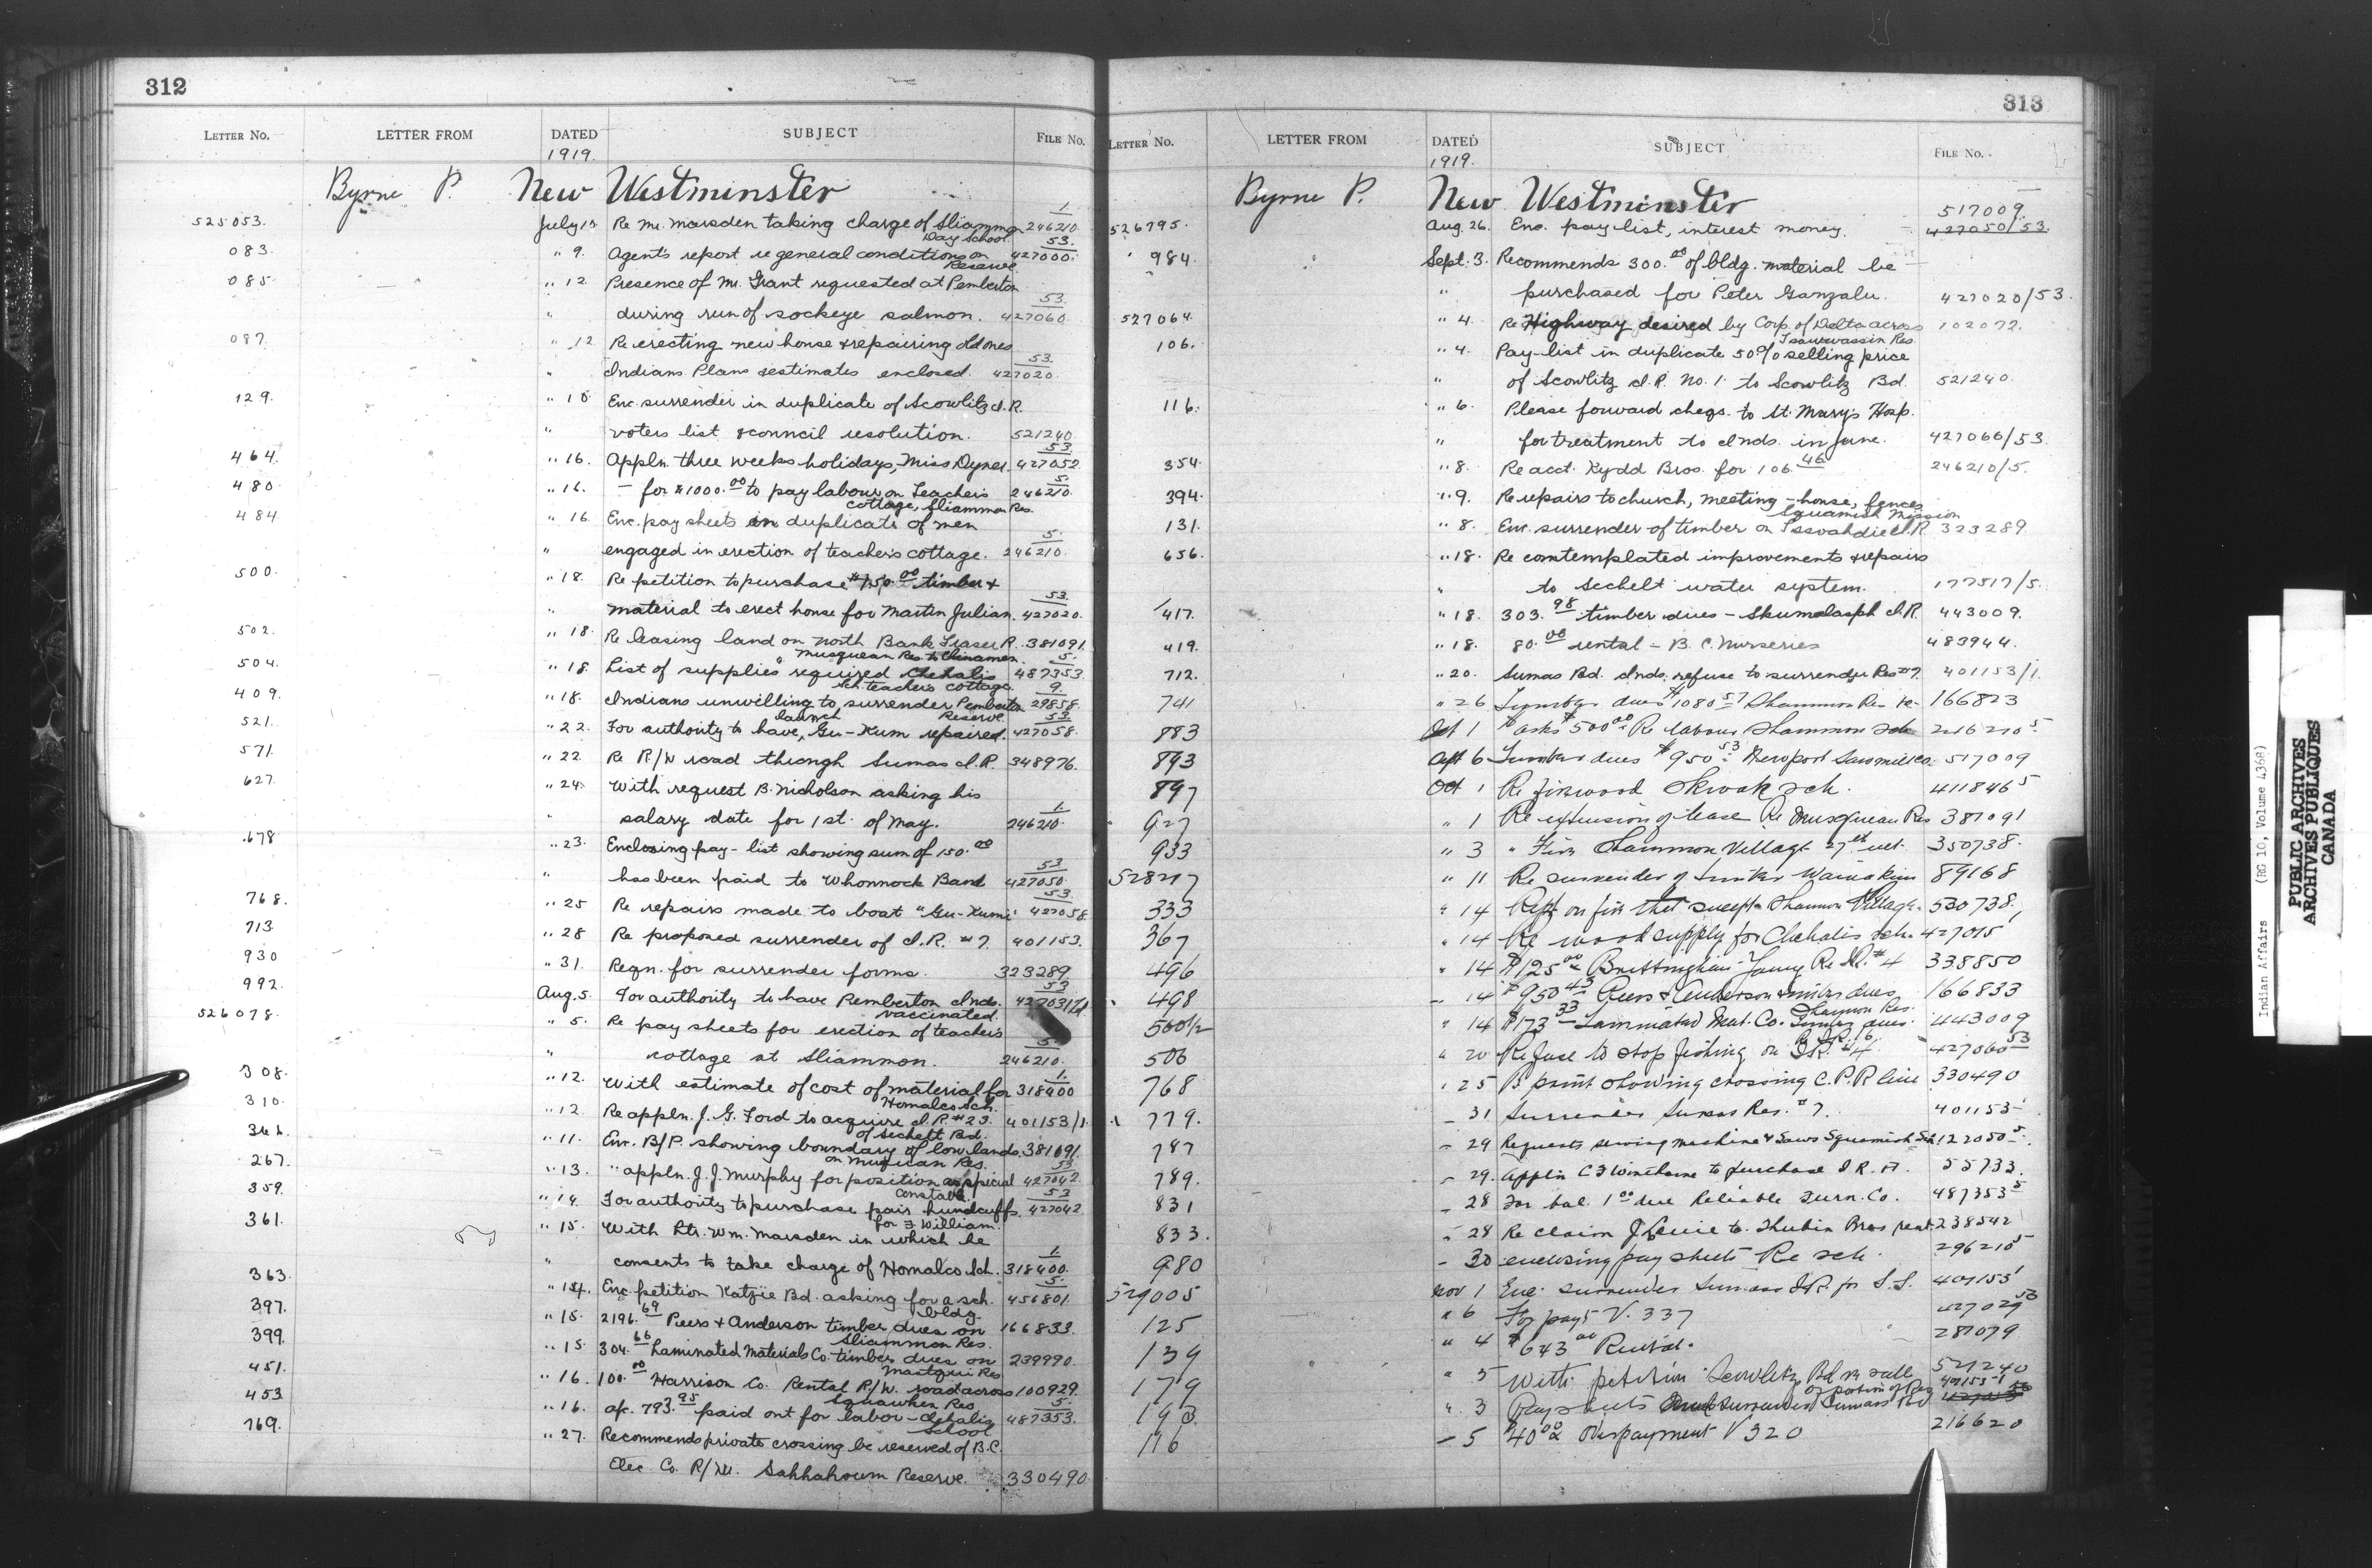 312
LETTER NO. LETTER FROM DATED SUBJECT FILE No.
1919.
Byrne P. New Westminster
525053. July 10 Re Mr. Marsden taking charge of Sliammon 246210 1.
Day School.
083. " 9. Agents report re general conditions on 427000. 53.
Reserve
085 " 12 Presence of Mr. Grant requested at Pemberton
" during run of sockeye salmon. 427060. 53.
087. " 12 Re erecting new house & repairing old ones
" Indians. Plans & estimates enclosed. 427020. 53.
129. " 10 Enc. surrender in duplicate of Scowlitz I.R.
" voters list & council resolution. 521240
464. " 16. Appln. three weeks holidays, Miss Dyner. 427052. 53
480. " 16. — for $1000.00 to pay labour on Teachers 246210. 5.
cottage, Sliammon Res.
484 " 16 Enc. pay sheets in duplicate of men
" engaged in erection of teacher's cottage. 246210. 5.
500. " 18. Re petition to purchase $150.00 timber &
" material to erect house for Martin Julian. 427020. 53.
502. " 18. Re leasing land on North Bank Fraser R. 381091.
Musquean Res. to Chinamen.
504. " 18. List of supplies required Chehalis 487353. 5.
Sch. teacher's cottage.
409. " 18. Indians unwilling to surrender Pemberton 29858. 9.
Reserve.
521. " 22. For authority to have launch Gu-Kum repaired. 427058. 53.
571. " 22. Re R/W road through Sumas I.R. 348976.
627. " 24. With request B. Nicholson asking his
" salary date for 1st. of May. 246210. 1.
678 " 23. Enclosing pay-list showing sum of 150.00
" has been paid to Whonnock Band 427050. 53
768. " 25 Re repairs made to boat "Gu-Kum" 427058. 53.
713. " 28 Re proposed surrender of I.R. #7. 401153.
930 " 31. Reqn. for surrender forms. 323289.
992. Aug. 5. For authority to have Pemberton Inds. 53
vaccinated.
526078. " 5. Re pay sheets for erection of teachers
" cottage at Sliammon. 246210. 5.
308. " 12. With estimate of cost of material for 318400 1.
Homalco Sch.
310. " 12. Re appln. J. G. Ford to acquire I.R. #23. 401153/1.
of Sechelt Bd.
" 11. Enc. B/P. showing boundary of low lands. 381091.
on Musquean Res.
267. " 13. " appln. J. J. Murphy for position as special 427042 53
Constable.
359. " 14. For authority to purchase pair handcuffs. 427042 53
for F William.
361. " 15. With ltr. Wm. Marsden in which he
" consents to take charge of Homalco Sch. 318400. 1.
363. " 14. Enc. petition Katzie Bd. asking for a sch. 456801. 5.
bldg.
397. " 15. 2196.69 Piers & Anderson timber dues on 166833.
Sliammon Res.
399. " 15. 304.66 Laminated Materials Co. timber dues on 239990.
Matsqui Res
451. " 16. 100.00 Harrison Co. Rental R/W. road across 100929.
Squawhen Res
453 " 16. a/c. 793.95 paid out for labor - Chehalis 487353. 5.
School
769. " 27. Recommends private crossing be reserved of B.C.
Elec. Co. R/W. Sahhahoum Reserve. 330490.
313
LETTER NO. LETTER FROM DATED SUBJECT FILE No.
1919.
Byrne P. New Westminster
526795. Aug. 26. Enc. pay list, interest money. 517009. 427050/53.
984. Sept. 3. Recommends 300.00 of bldg. material be
" purchased for Peter Ganzalu. 427020/53.
527064. " 4. Re Highway desired by Corp. of Delta across 102072.
Tsawwassin Res.
106. " 4. Pay-list in duplicate 50% selling price
" of Scowlitz I.R. No. 1. to Scowlitz Bd. 521240.
116. " 6. Please forward cheqs. to St. Mary's Hosp.
" for treatment to Inds. in June. 427066/53.
354. " 8. Re acct. Kydd Bros. for 106.46 246210/5.
394. " 9. Re repairs to church, meeting-house, fences,
Squamish Mission
131. " 8. Enc. surrender of timber on I.R. 323289.
656. " 18. Re comtemplated improvements & repairs
" to Sechelt water system. 177517/5.
417. " 18. 303.98 timber dues - Skumalasph I.R. 443009.
419. " 18. 80.00 rental - B.C. Nurseries 483944.
712. " 20. Sumas Bd. Inds. refuse to surrender Res #7. 401153/1.
741 " 26 dues $1080.57 166823
883 Oct 1 asks $500.00 Re labour 5
893 6 dues $950.53 Newport Sawmill Co. 517009
897 Oct 1 Re firewood Skwah sch. 411846 5
927 " 1 Re extension of lease Re Musquean Res 381091
933 " 3 " Fire Sliammon Village 27th ult. 350738.
528217 " 11 Re surrender of timber 89168
333 " 14 Rept on fire that swept Sliammon Village. 530738.
367 " 14 Re wood supply for Chehalis sch. 427015
496 " 14 $125.00 Brettingham Young Re I.R. #4 338850
498 " 14 $950.43 Piers & Anderson timber dues 166833
Sliammon Res.
500 1/2 " 14 $173.33 Laminated Mat. Co. timber dues. 443009
506 " 20 Refuse to stop fishing on I.R. #4 427060 53
768 " 25 B print showing crossing C.P.R line 330490
779. 31 Surrender Sumas Res. #7. 401153
787 29 Requests sewing machine & Saws Squamish Sch 122050 5.
789. 29. Appln to purchase I.R. 55733.
831 28 For bal. 1.00 due Reliable Furn. Co. 487353 5
833. 28 Re claim J Louie to Bros rent. 238542
980 30 enclosing pay sheets Re sch. 5
529005 Nov 1 Enc. surrender Sumas I.R. for S.S.
125 " 6 For payt V. 337 427029 53
139 " 4 $643.00 Rental. 281079
179 " 5 With petition Scowlitz Bd re sale 521240
of portion of Res
193. " 3 Pay sheets Surrender Sumas Rd 401153-1
116 5 40.00 payment V 320 216620
Indian Affairs (RG 10, Volume 4368)
PUBLIC ARCHIVES
ARCHIVES PUBLIQUES
CANADA